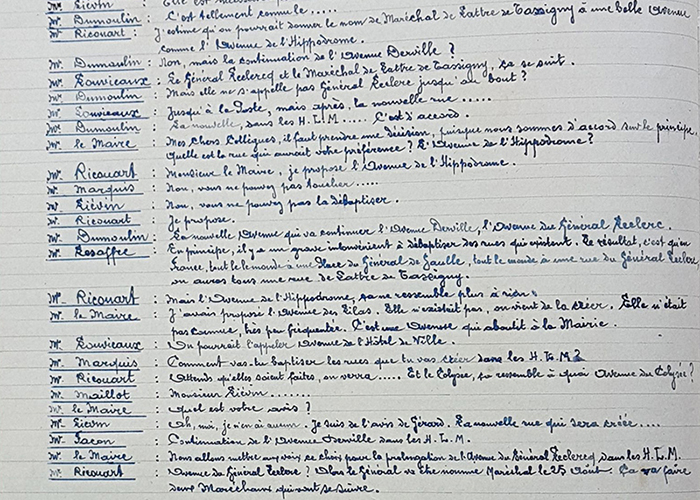 Mr. Liévin :
Mr. Dumoulin : C'est tellement connue.....
Mr. Ricouart : J'estime qu'on pourrait donner le nom de Maréchal de Lattre de Tassigny à une belle Avenue
comme l'Avenue de l'Hippodrome.
Mr. Dumoulin : Non, mais la continuation de l'Avenue Derville ?
Mr. Louvieaux : Le Général Leclercq et le Maréchal de Lattre de Tassigny, ça se suit.
Mr. Dumoulin : Mais elle ne s'appelle pas Général Leclerc jusqu'au bout ?
Mr. Louvieaux : Jusqu'à la Poste, mais après, la nouvelle rue.....
Mr. Dumoulin : La nouvelle, dans les H.L.M..... C'est d'accord.
Mr. le Maire : Mes Chers Collègues, il faut prendre une décision, puisque nous sommes d'accord sur le principe.
Quelle est la rue qui aurait votre préférence ? L'Avenue de l'Hippodrome ?
Mr. Ricouart : Monsieur le Maire, je propose l'Avenue de l'Hippodrome.
Mr. Marquis : Non, vous ne pouvez pas toucher.....
Mr. Liévin : Non, vous ne pouvez pas la débaptiser.
Mr. Ricouart : Je propose.
Mr. Dumoulin : La nouvelle Avenue qui va continuer l'Avenue Derville, l'Avenue du Général Leclerc.
Mr. Lesaffre : En principe, il y a un grave inconvénient à débaptiser des rues qui existent. Le résultat, c'est qu'en
France, tout le monde a une Place du Général de Gaulle, tout le monde a une rue du Général Leclerc,
on aura tous une rue de Lattre de Tassigny.
Mr. Ricouart : Mais l'Avenue de l'Hippodrome, ça ne ressemble plus à rien.
Mr. le Maire : J'avais proposé l'Avenue des Lilas. Elle n'existait pas, on vient de la créer. Elle n'était
pas connue, très peu fréquentée. C'est une Avenue qui aboutit à la Mairie.
Mr. Louvieaux : On pourrait l'appeler Avenue de l'Hôtel de Ville.
Mr. Marquis : Comment vas-tu baptiser les rues que tu vas créer dans les H.L.M ?
Mr. Ricouart : Attends qu'elles soient faites, on verra..... Et le Colysée, ça ressemble à quoi Avenue du Colysée ?
Mr. Maillot : Monsieur Liévin.......
Mr. le Maire : Quel est votre avis ?
Mr. Liévin : Oh, moi, je n'en ai aucun. Je suis de l'avis de Gérard. La nouvelle rue qui sera créée....
Mr. Facon : Continuation de l'Avenue Derville dans les H.L.M.
Mr. le Maire : Nous allons mettre aux voix ce choix pour la prolongation de l'Avenue du Général Leclercq dans les H.L.M.
Mr. Ricouart : Avenue du Général Leclerc ? Alors le Général va être nommé Maréchal le 25 Août. Ça va faire
deux Maréchaux qui vont se suivre.